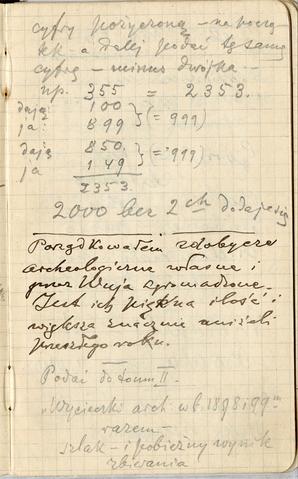 cyfry pożyczoną – na począ
tek – a dalej podać tę samą
cyfrę – minus dwójka –
np. 355 = 2353.
dają: 100
ja: 899 } (= 999)
dają 850.
ja 149 } (= 999)
2353.
2000 bez 2ch dodaje się
Porządkowałem zdobycze
archeologiczne własne i
przez Wuja zgromadzone.
Jest ich piękna ilość i
większa znacznie aniżeli
przeszłego roku.
Podać do tomu II.
„Wycieczki arch. w b. 1898 i 99"
razem –
szlak – i pobieżny wynik
zbierania